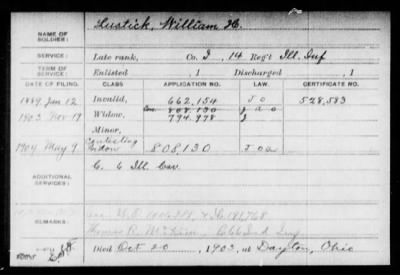 NAME OF SOLDIER: Lustick, William H.
SERVICE: Late rank, Co. I, 14 Reg't Ill. Inf
TERM OF SERVICE: Enlisted , 1 Discharged , 1
DATE OF FILING. CLASS. APPLICATION NO. LAW. CERTIFICATE NO.
1889 Jan 12 Invalid, 662,154 528,583
Con 808,130
1903 Nov 17 Widow, 794,978
Minor,
1904 May 9 Contesting Widow 808130
ADDITIONAL SERVICES: C. 6 Ill. Cav.
REMARKS:
Thomas R.
Died Oct 20, 1903, at Dayton, Ohio